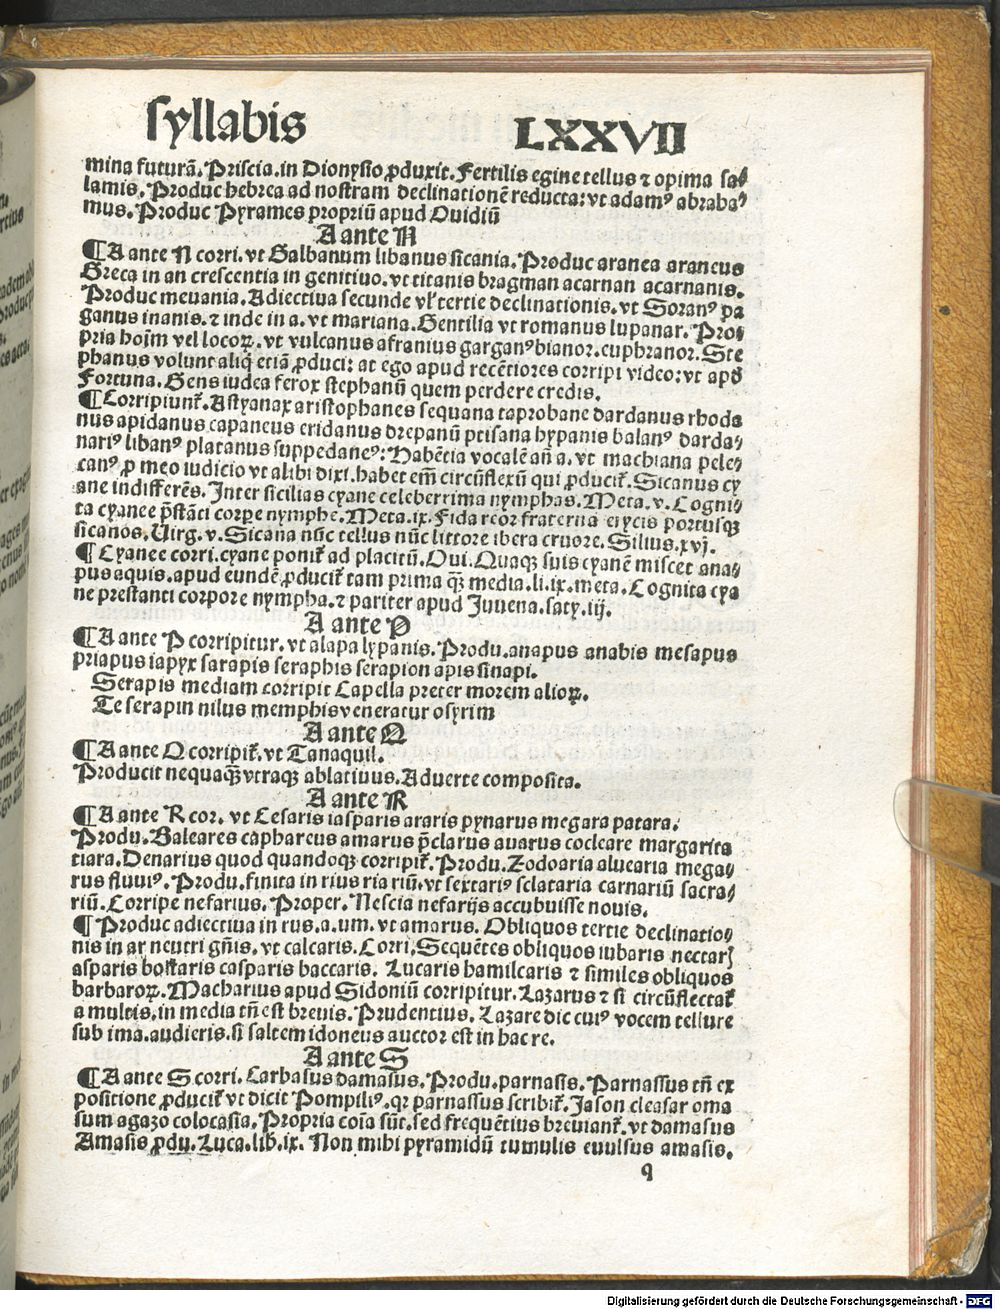 syllabis LXXVII
mina futurā. Priscia. in Dionysio ꝓduxit. Fertilis egine tellus ⁊ opima sal
lamis. Produc hebrea ad nostram declinationē reducta: vt adamꝰ abraha⸗
mus. Produc Pyrames propriū apud Ouidiū
A ante N
¶A ante N corri. vt Galbanum libanus sicania. Produc aranea araneus
Greca in an crescentia in genitiuo. vt titanis bragman acarnan acarnanis.
Produc meuania. Adiectiua secunde vl̕ tertie declinationis. vt Soranꝰ pa
ganus inanis. ⁊ inde in a. vt mariana. Gentilia vt romanus lupanar. Pro⸗
pria hoīm vel locoꝝ. vt vulcanus afranius garganꝰ bianor. euphranor. Ste
phanus volunt aliq̄ etiā ꝓduci: at ego apud recētiores corripi video: vt apđ
Fortuna. Gens iudea ferox stephanū quem perdere credis.
¶Corripiunt᷑. Astyanax aristophanes sequana taprobane dardanus rhoda
nus apidanus capaneus eridanus drepanū ptisana hypanis balanꝰ darda⸗
nariꝰ libanꝰ platanus suppedaneꝰ: Habētia vocalē añ a. vt machiana pele⸗
canꝰ ꝓ meo iudicio vt alibi dixi. habet em̄ circūflexū qui ꝓducit᷑. Sicanus cy
ane indifferēs. Inter sicilias cyane celeberrima nymphas. Meta. v. Cogni⸗
ta cyanee p̄stāti corpe nymphe. Meta. ix. Fida reor fraterna erycis portusqꝫ
sicanos. Uirg. v. Sicana nūc tellus nūc littore ibera cruore. Silius. xvj.
¶ Cyanee corri. cyane ponit᷑ ad placitū. Oui. Quaqꝫ suis cyanē miscet ana⸗
pus aquis. apud eundē ꝓducit᷑ tam prima q̄ꝫ media. li. ix. meta. Cognita cya
ne prestanti corpore nympha. ⁊ pariter apud Juuena. saty. iij.
A ante P
¶A ante P corripitur. vt alapa lypanis. Produ. anapus anabis mesapus
priapus iapyx sarapis seraphis serapion apis sinapi.
Serapis mediam corripit Capella preter morem alioꝝ.
Te serapin nilus memphis veneratur osyrim
A ante Q
¶A ante Q corripit᷑. vt Tanaquil.
Producit nequaqꝫ vtraqꝫ ablatiuus. Aduerte composita.
A ante R
¶A ante R cor. vt Cesaris iasparis araris pynarus megara patara.
Produ. Baleares caphareus amarus p̄clarus auarus cocleare margarita
tiara. Denarius quod quandoqꝫ corripit᷑. Produ. Zodoaria alucaria mega⸗
rus fluuiꝰ. Produ. finita in rius ria riū. vt sextariꝰ sclataria carnariū sacra⸗
riū. Corripe nefarius. Proper. Nescia nefarijs accubuisse nouis.
¶ Produc adiectiua in rus. a. um. vt amarus. Obliquos tertie declinatio⸗
nis in ar neutri gn̄is. vt calcaris. Corri. Sequētes obliquos iubaris nectar⸗
asparis bostaris casparis baccaris. Lucaris hamilcaris ⁊ similes obliquos
barbaroꝝ. Macharius apud Sidoniū corripitur. Lazarus ⁊ si circūflectat᷑
a multis. in media tn̄ est breuis. Prudentius. Lazare dic cuiꝰ vocem tellure
sub ima. audieris. si saltem idoneus auctor est in hac re.
A ante S
¶A ante S corri. Carbasus damasus. Produ. parnasis. Parnassus tn̄ ex
positione ꝓducit᷑ vt dicit Pompiliꝰ. qr parnassus scribit᷑. Jason cleasar oma
sum agazo colocasia. Propria coīa sūt. sed frequētius breuiant᷑. vt damasus
Amasis ꝓdu. Luca. lib. ix. Non mihi pyramidū tumulis euulsus amasis.
q
Digitalisierung gefördert durch die Deutsche Forschungsgemeinschaft - DFG